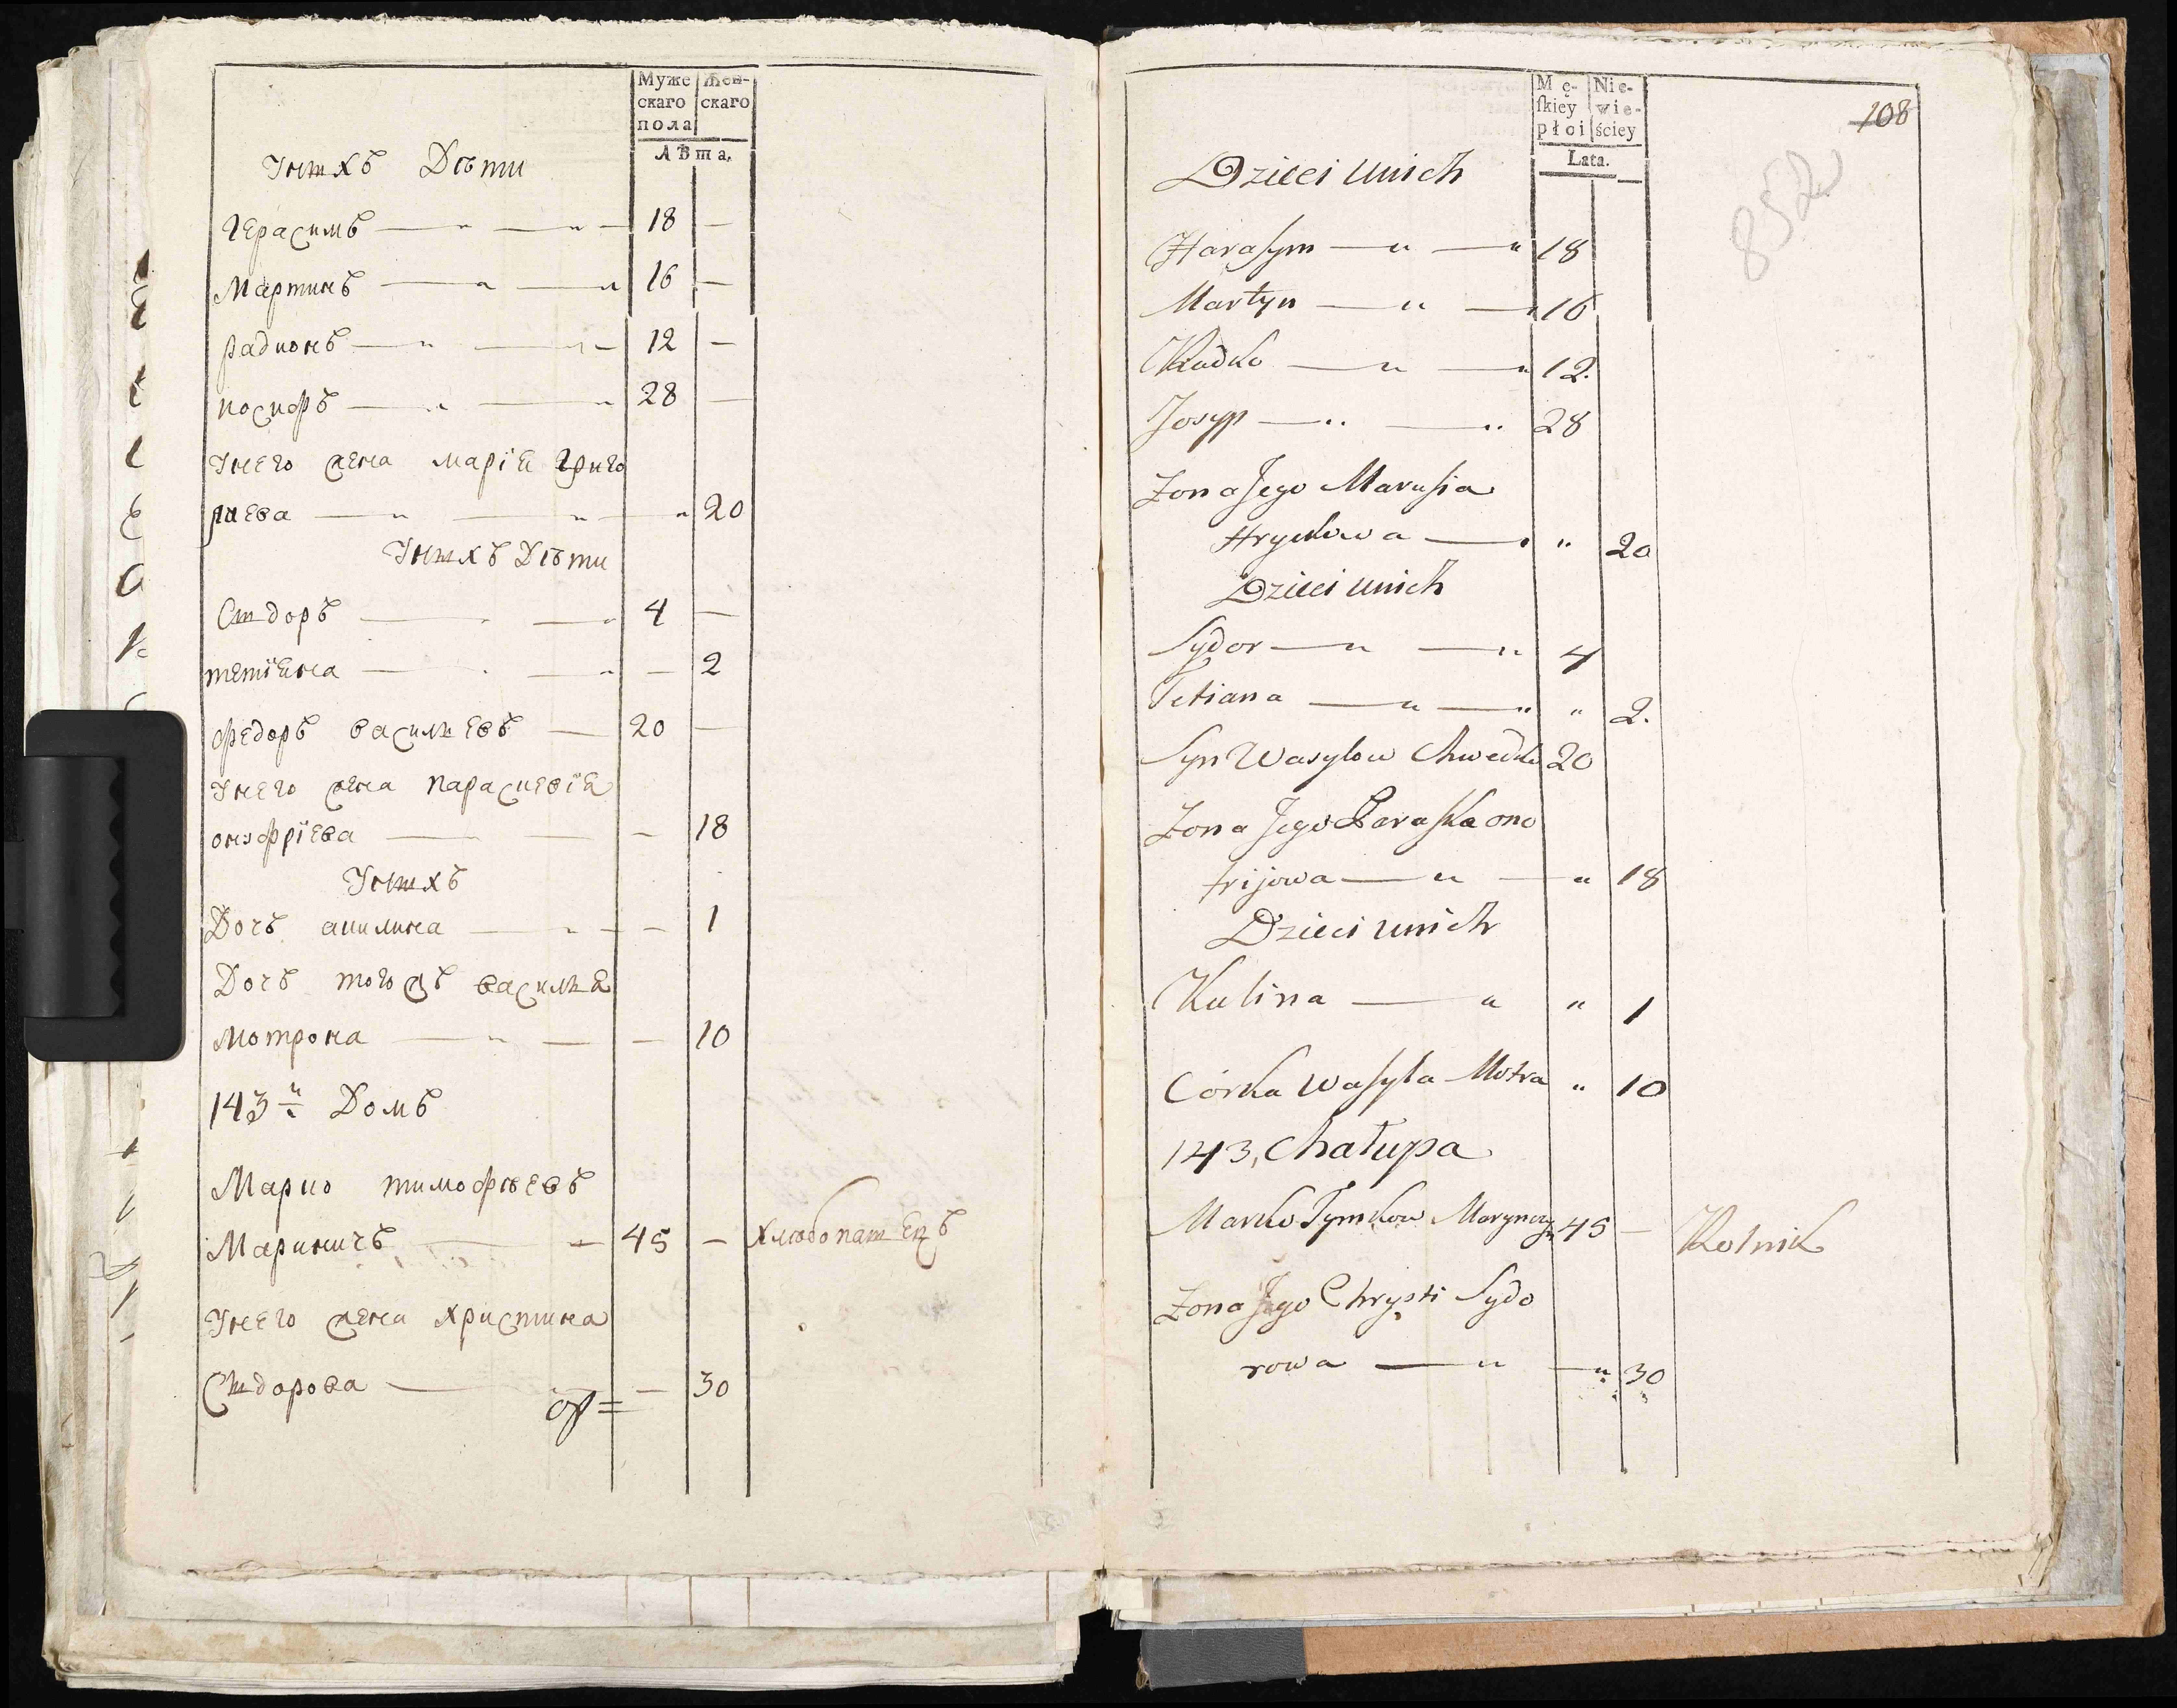 Муже
скаго
пола
Жен-
скаго
Лѣта.
Унихъ Дѣти
Герасимъ 18 —
Мартинъ 16 —
радионъ 12 —
иосифъ 28 —
Унего жена марїя григо
риева " 20
Унихъ Дѣти
Сидоръ 4 —
тетїяна — 2
федоръ васильевъ — 20 —
Унего жена параскевїя
онуфрїева — 18
Унихъ
Дочъ акилина — 1
Дочъ тогожъ василья
мотрона — 10
143й Домъ
Марко тимофѣевъ
Мариничъ 45 — хлѣбопашецъ
Унего жена христина
Сидорова — 30
Mę-
ſkiey
płoi
Nie-
wie-
ściey
Lata.
108
852
Dzieci unich
Haraſym 18
Martyn 16
Radko 12.
Josyp 28
Zona Jego Maruſia
Hryckowa " 20
Dzieci unich
Sydor 4
Tetiana " 2.
Syn Wasylow Chwedko 20
Zona Jego Paraſka ono
frijowa " 18
Dzieci unich
Kulina " 1
Córka Waſyla Motra " 10
143, Chałupa
Marko Tymkow Marynicz 45 — Rolnik
Zona Jego Chrysti Sydo
rowa " 30